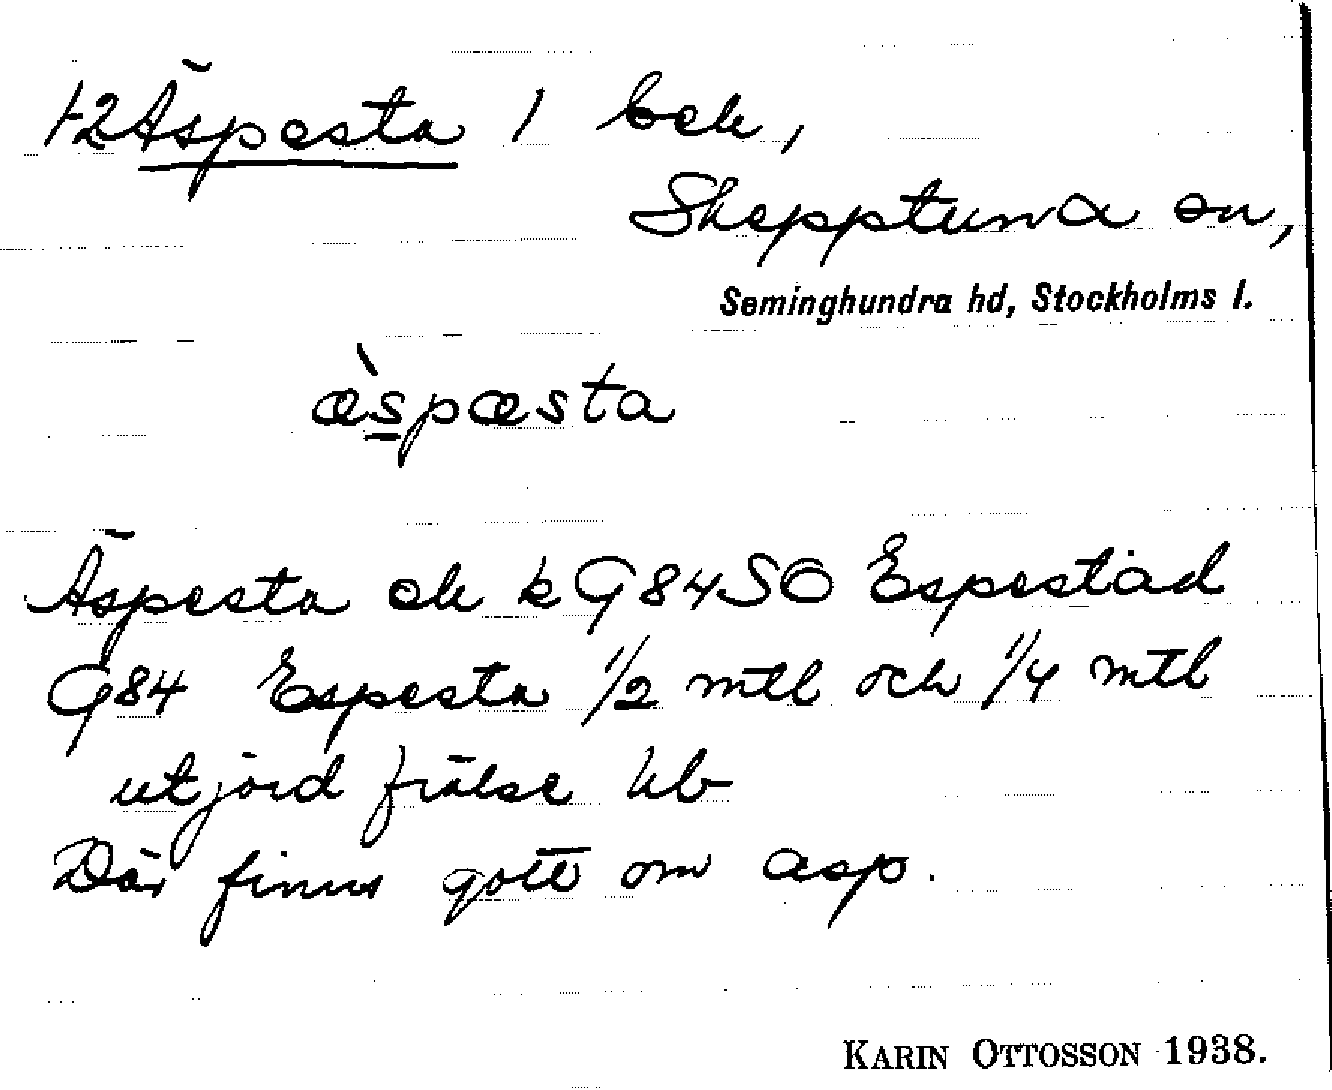 1-2 Äspesta 1 beb,
Skepptuna sn,
Seminghundra hd, Stockholms l.
æ̀spæsta
Äspesta ek k G84SO Espestad
G84 Espesta 1/2 mtl och 1/4 mtl
utjord frälse
Där finns gott om asp.
KARIN OTTOSSON 1938.